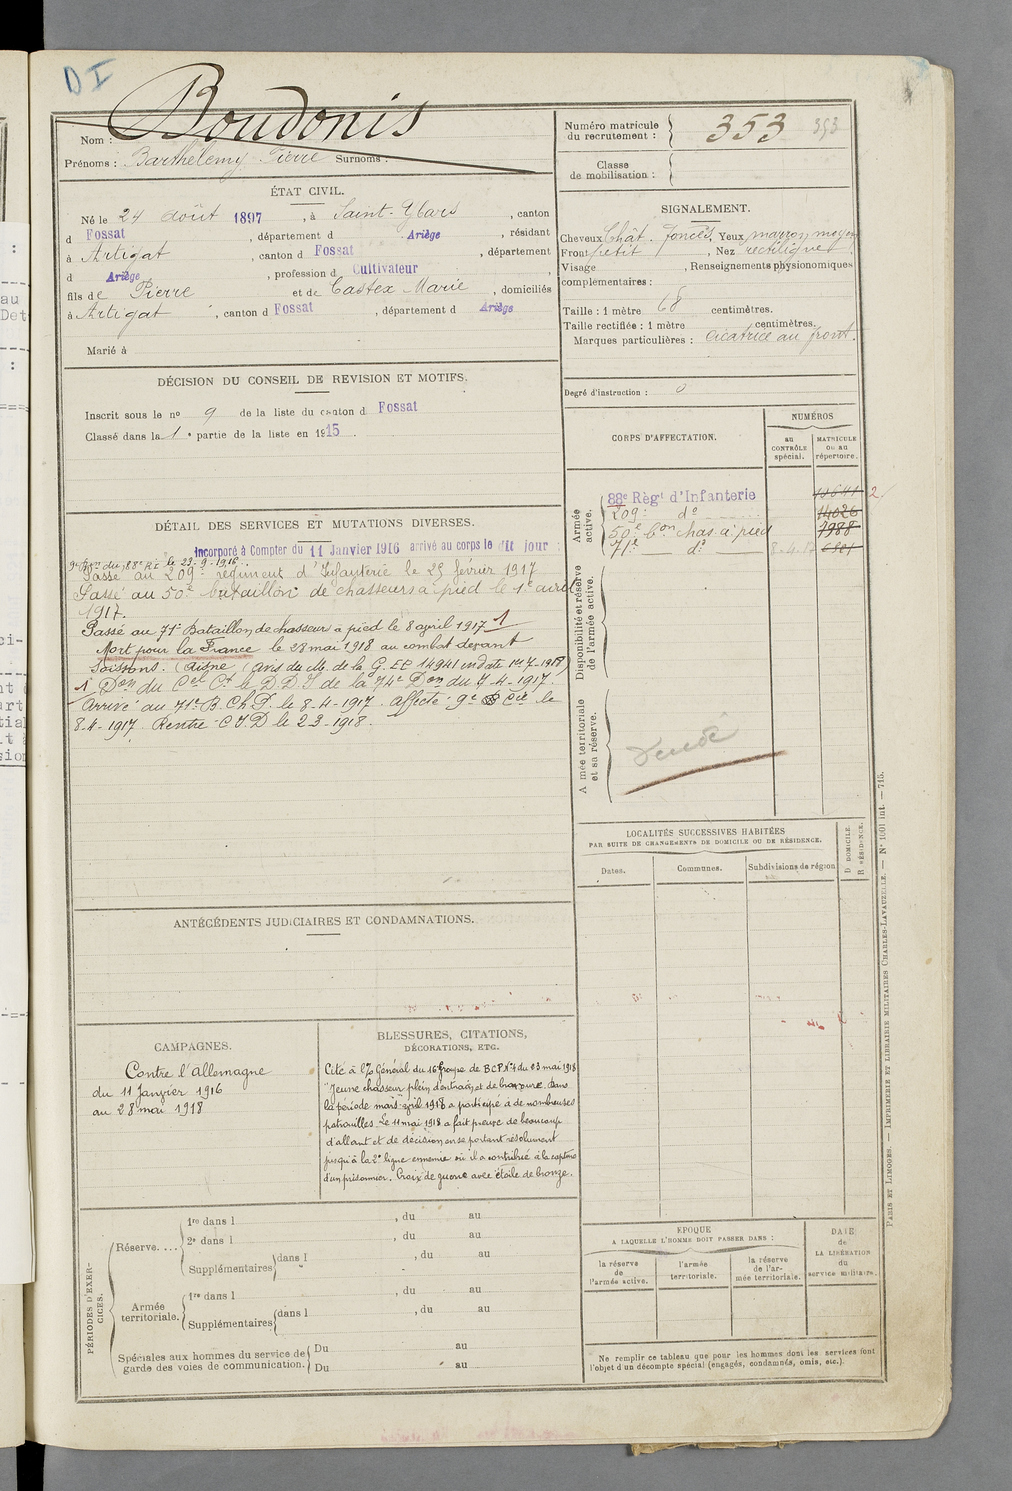 D I
Boudonis
Nom :
Prénoms : Barthélemy Pierre Surnoms :
Numéro matricule du recrutement : 353 353
Classe de mobilisation :
ÉTAT CIVIL.
Né le 24 août 1897, à Saint-Ybars, canton
d Fossat, département d Ariège, résidant
à Artigat, canton d Fossat, département
d Ariège, profession d Cultivateur,
fils de Pierre et de Castex Marie, domiciliés
à Artigat, canton d Fossat, département d Ariège
Marié à
SIGNALEMENT.
Cheveux Chât. foncés. Yeux marron moyen
Front petit, Nez rectiligne
Visage, Renseignements physionomiques
complémentaires :
Taille : 1 mètre 68 centimètres.
Taille rectifiée : 1 mètre centimètres.
Marques particulières : cicatrice au front.
Degré d'instruction : 0
DÉCISION DU CONSEIL DE REVISION ET MOTIFS.
Inscrit sous le no 9 de la liste du canton d Fossat
Classé dans la 1e partie de la liste en 1915.
DÉTAIL DES SERVICES ET MUTATIONS DIVERSES.
Incorporé à Compter du 11 Janvier 1916 arrivé au corps le dit jour :
du 88e RI le 23.9.1916.
Passé au 209e régiment d'Infanterie le 25 février 1917
Passé au 50e bataillon de chasseurs à pied le 1er avril
1917.
Passé au 71e Bataillon de chasseur à pied le 8 avril 1917 1
Mort pour la France le 28 mai 1918 au combat devant
Soissons. (Aisne (avis du M. de la G. EC 14941 en date 1er-7-1918)
1 Don du Cel Ct le D.D.I de la 74e Don du 7-4-1917.
Arrivé au 71e B. Ch. P. le 8-4-1917. affecté 9e Cie le
8-4-1917. Rentré C.I.D le 2-3-1918.
CORPS D'AFFECTATION.
NUMÉROS
au CONTRÔLE spécial.
MATRICULE ou au répertoire.
Armée active.
88e Régt d'Infanterie 2
209e do 14026
50e bon chas. à pied 7988
71e do 8-4-17 6801
Disponibilité et réserve de l'armée active.
Armée territoriale et sa réserve.
LOCALITÉS SUCCESSIVES HABITÉES
PAR SUITE DE CHANGEMENTS DE DOMICILE OU DE RÉSIDENCE.
Dates.
Communes.
Subdivisions de région
D DOMICILE.
R RÉSIDENCE.
ANTÉCÉDENTS JUDICIAIRES ET CONDAMNATIONS.
CAMPAGNES.
Contre l'Allemagne
du 11 Janvier 1916
au 28 mai 1918
BLESSURES, CITATIONS,
DÉCORATIONS, ETC.
Cité à l'O/ Général du 16e Groupe de BCP No 4 du 23 mai 1918
"Jeune chasseur plein d'entrain et de bravoure. Dans
la période mars-avril 1918 a participé à de nombreuses
patrouilles. Le 11 mai 1918 a fait preuve de beaucoup
d'allant et de décision en se portant résolument
jusqu'à la 2e ligne ennemie où il a contribué à la capture
d'un prisonnier. Croix de guerre avec étoile de bronze.
PÉRIODES D'EXERCICES.
Réserve....
1re dans l , du au
2e dans l , du au
Supplémentaires dans l , du au
Armée territoriale.
1re dans l , du au
Supplémentaires dans l , du au
Spéciales aux hommes du service de garde des voies de communication.
Du au
Du au
EPOQUE
A LAQUELLE L'HOMME DOIT PASSER DANS :
la réserve de l'armée active.
l'armée territoriale.
la réserve de l'armée territoriale.
DATE de LA LIBÉRATION du service militaire.
Ne remplir ce tableau que pour les hommes dont les services font
l'objet d'un décompte spécial (engagés, condamnés, omis, etc.).
PARIS ET LIMOGES. — IMPRIMERIE ET LIBRAIRIE MILITAIRES CHARLES-LAVAUZELLE. — No 1001 int. — 715.